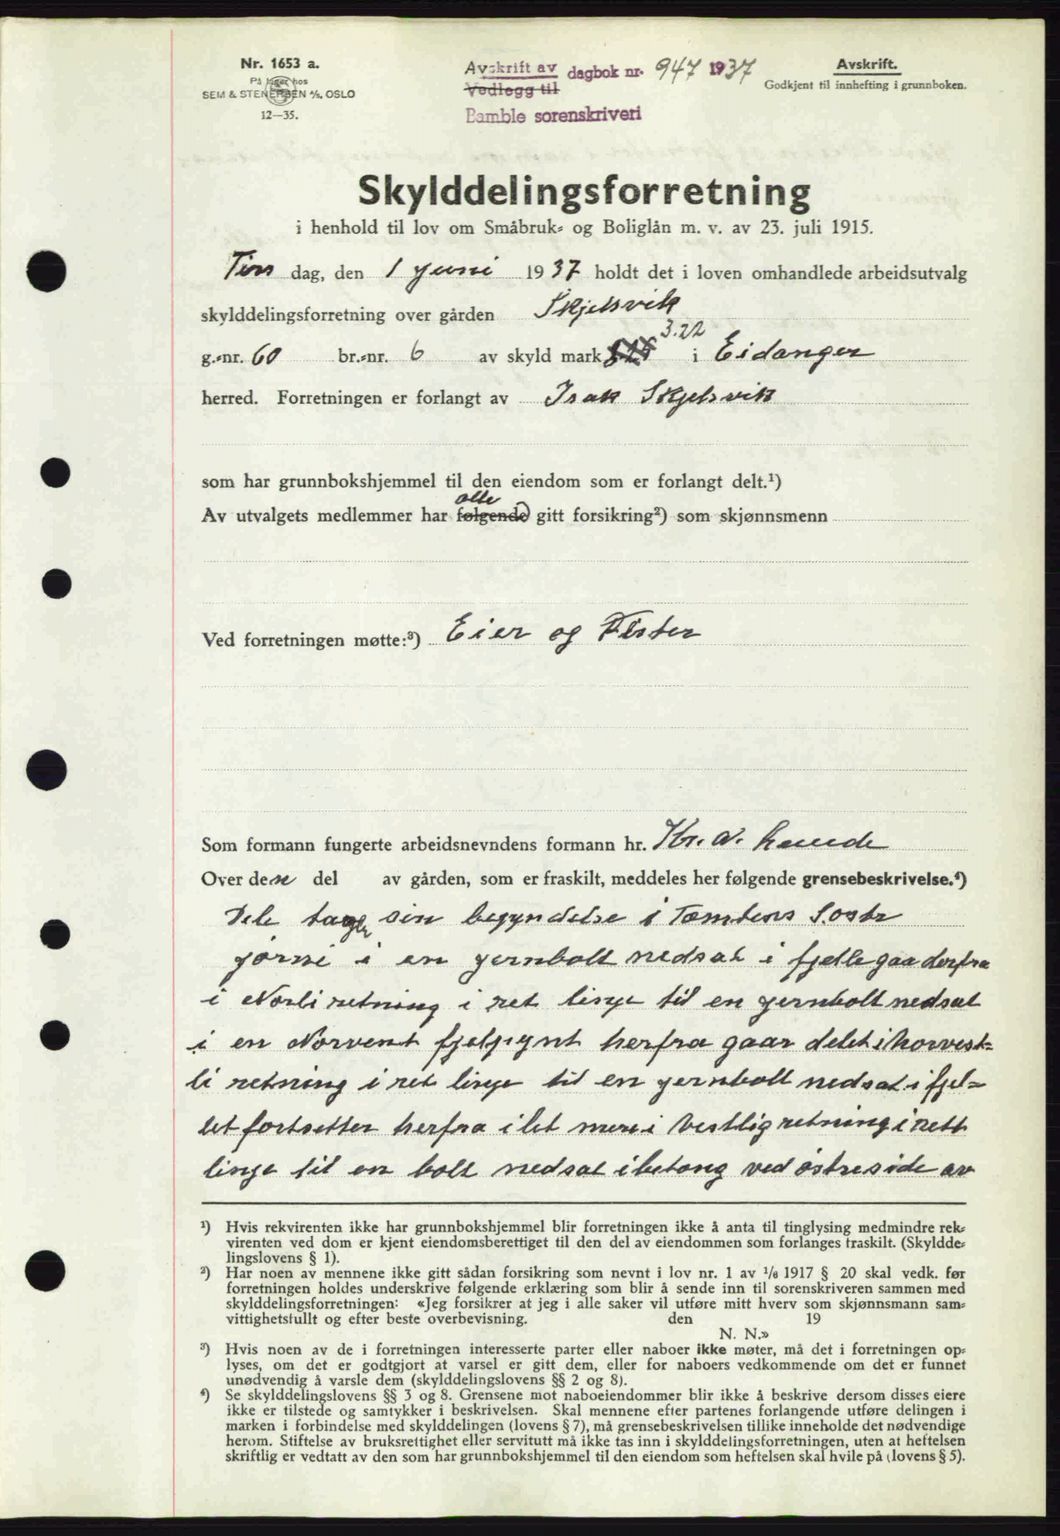 Nr. 1653 a.
På lager hos
SEM & STENERSEN A/S, OSLO
12—35.
Avskrift av dagbok nr. 947 1937
Vedlegg til
Bamble sorenskriveri
Avskrift.
Godkjent til innhefting i grunnboken.
Skylddelingsforretning
i henhold til lov om Småbruk- og Boliglån m. v. av 23. juli 1915.
Tirs dag, den 1 juni 1937 holdt det i loven omhandlede arbeidsutvalg
skylddelingsforretning over gården Skjelsvik
g.-nr. 60 br.-nr. 6 av skyld mark 3.22 i Eidanger
herred. Forretningen er forlangt av Isak Skjelsvik
som har grunnbokshjemmel til den eiendom som er forlangt delt.¹)
Av utvalgets medlemmer har følgende alle gitt forsikring²) som skjønnsmenn
Ved forretningen møtte:³) Eier og Fester
Som formann fungerte arbeidsnevndens formann hr. Kr. A.
Over den del av gården, som er fraskilt, meddeles her følgende grensebeskrivelse.⁴)
Dele tager sin begyndelse i Tomtens S.ostr
jørne i en jernbolt nedsat i fjelle gaa derfra
i Norli retning i ret linje til en jernbolt nedsat
i en Norvent fjelpynt herfra gaar delet i horvest-
li retning i ret linje til en jernbolt nedsat i fjel-
let fortsetter herfra i let mere i Vestlig retning i rett
linje til en bolt nedsat i betong ved østreside av
¹) Hvis rekvirenten ikke har grunnbokshjemmel blir forretningen ikke å anta til tinglysing medmindre rek-
virenten ved dom er kjent eiendomsberettiget til den del av eiendommen som forlanges fraskilt. (Skyldde-
lingslovens § 1).
²) Har noen av mennene ikke gitt sådan forsikring som nevnt i lov nr. 1 av 1/6 1917 § 20 skal vedk. før
forretningen holdes underskrive følgende erklæring som blir å sende inn til sorenskriveren sammen med
skylddelingsforretningen: «Jeg forsikrer at jeg i alle saker vil utføre mitt hverv som skjønnsmann sam-
vittighetsfullt og efter beste overbevisning. den 19
N. N.»
³) Hvis noen av de i forretningen interesserte parter eller naboer ikke møter, må det i forretningen op-
lyses, om det er godtgjort at varsel er gitt dem, eller for naboers vedkommende om det er funnet
unødvendig å varsle dem (skylddelingslovens §§ 2 og 8).
⁴) Se skylddelingslovens §§ 3 og 8. Grensene mot naboeiendommer blir ikke å beskrive dersom disses eiere
ikke er tilstede og samtykker i beskrivelsen. Skal mennene efter partenes forlangende utføre delingen i
marken i forbindelse med skylddelingen (lovens § 7), må grensebeskrivelsen tillike inneholde det nødvendige
herom. Stiftelse av bruksrettighet eller servitutt må ikke tas inn i skylddelingsforretningen, uten at heftelsen
skriftlig er vedtatt av den som har grunnbokshjemmel til den eiendom som heftelsen skal hvile på (lovens § 5).